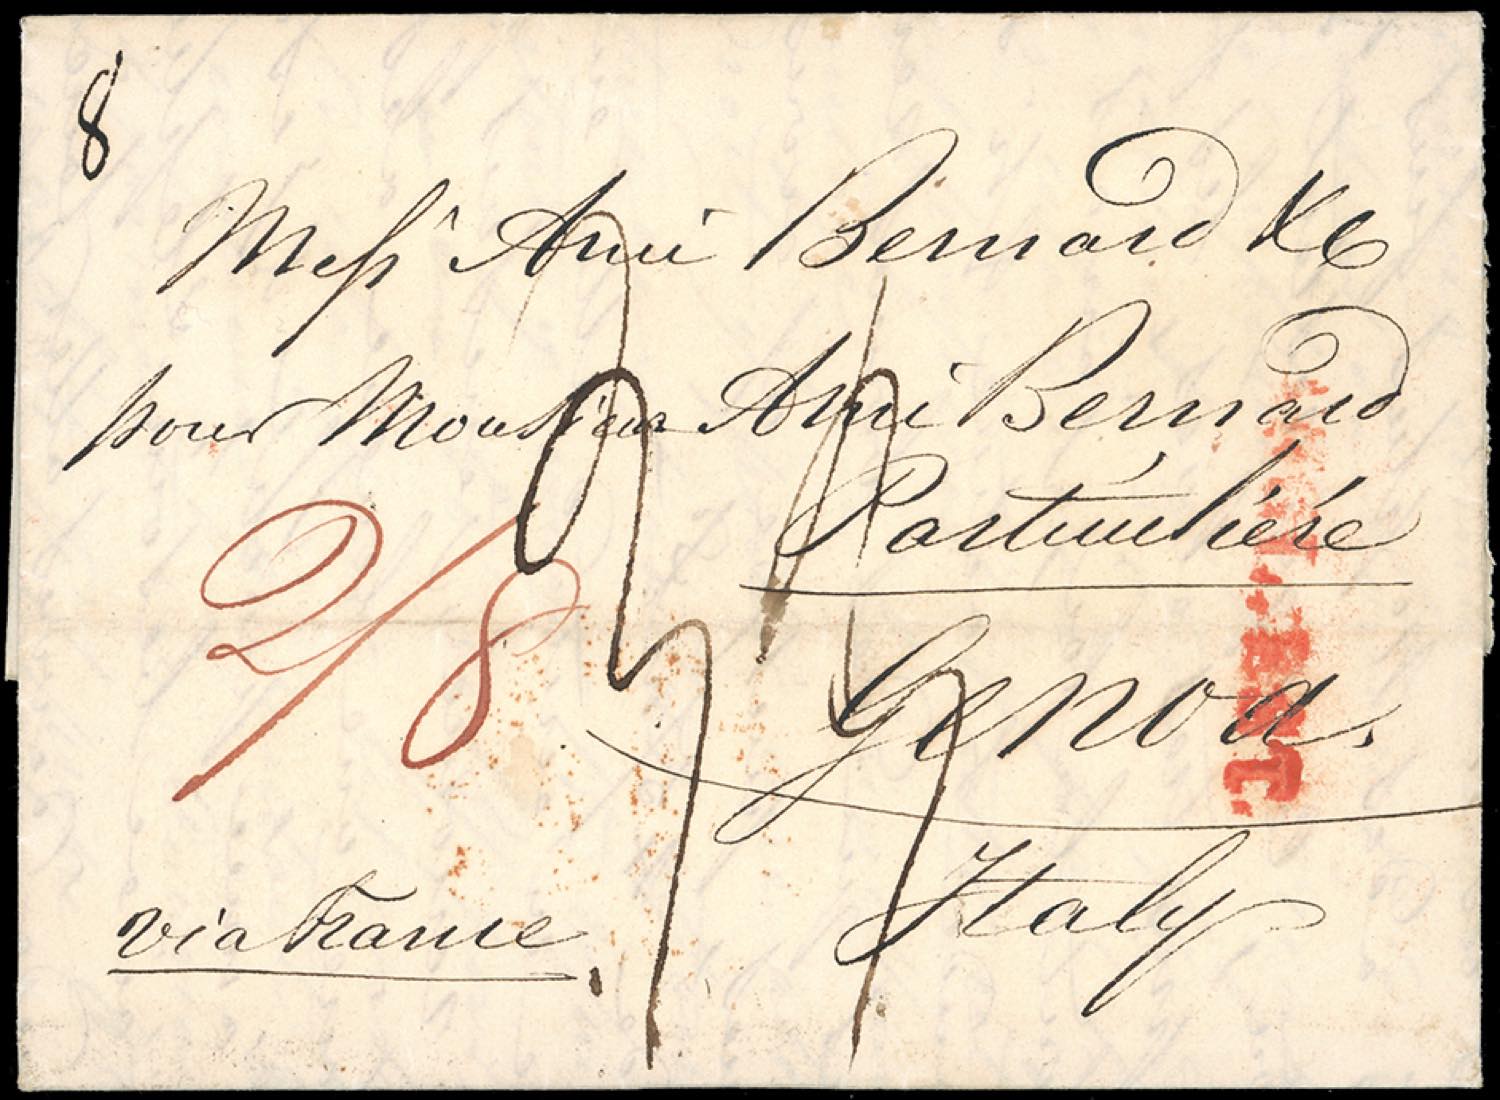 8
Messrs Ami Bernard & Co
pour Monsieur Ami Bernard
Particulière
2/8
Genoa.
Italy
via France.